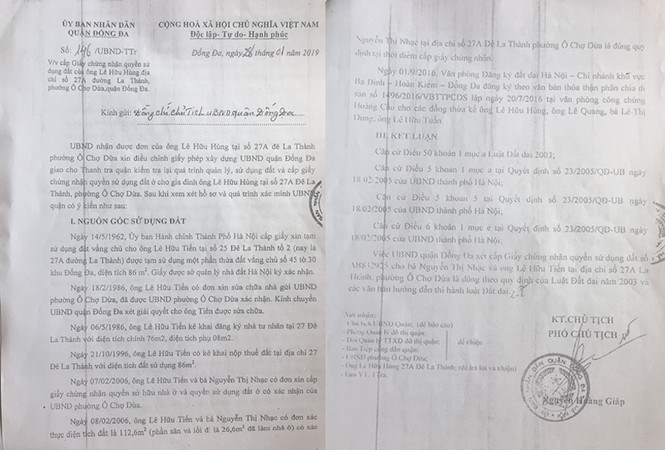 ỦY BAN NHÂN DÂN
QUẬN ĐỐNG ĐA
CỘNG HOÀ XÃ HỘI CHỦ NGHĨA VIỆT NAM
Độc lập- Tự do- Hạnh phúc
Số: 146/UBND-TTr
Đống Đa, ngày 28 tháng 01 năm 2019
V/v cấp Giấy chứng nhận quyền sử
dụng đất của ông Lê Hữu Hùng địa
chỉ số 27A đường La Thành,
phường Ô Chợ Dừa,quận Đống Đa.
Kính gửi: Đồng chí chủ tịch UBND quận Đống Đa.
UBND nhận được đơn của ông Lê Hữu Hùng tại số 27A đê La Thành
phường Ô Chợ Dừa xin điều chỉnh giấy phép xây dựng UBND quận Đống Đa
giao cho Thanh tra quận kiểm tra lại quá trình quản lý, sử dụng đất và cấp giấy
chứng nhận quyền sử dụng đất ở cho gia đình ông Lê Hữu Hùng tại số 27A Đê La
Thành, phường Ô Chợ Dừa. Sau khi xem xét hồ sơ và quá trình xác minh UBND
quận có ý kiến như sau:
I. NGUỒN GỐC SỬ DỤNG ĐẤT
Ngày 14/5/1962, Ủy ban Hành chính Thành Phố Hà Nội cấp giấy xin tạm
sử dụng đất vắng chủ cho ông Lê Hữu Tiến tại số 25 Đê La Thành tổ 2 (nay là
27A đường La Thành) được tạm sử dụng một phần thửa đất vắng chủ số 45 lô 30
khu Đống Đa, diện tích 86 m². Giấy được sở quản lý nhà đất Hà Nội ký xác nhận.
Ngày 18/2/1986, ông Lê Hữu Tiến có đơn xin sửa chữa nhà gửi UBND
phường Ô Chợ Dừa, đã được UBND phường Ô Chợ Dừa xác nhận. Kính chuyển
UBND quận Đống Đa xét giải quyết cho ông Tiến được sửa chữa.
Ngày 06/5/1986, ông Lê Hữu Tiến kê khai đăng ký nhà tư nhân tại 27 Đê
La Thành với diện tích chính 76m2, diện tích phụ 08m2.
Ngày 21/10/1996, ông Lê Hữu Tiến có kê khai nộp thuế đất tại địa chỉ 27
Đê La Thành với diện tích đất sử dụng 86m².
Ngày 07/02/2006, ông Lê Hữu Tiến và bà Nguyễn Thị Nhạc có đơn xin cấp
giấy chứng nhận quyền sở hữu nhà ở và quyền sử dụng đất ở có xác nhận của
UBND phường Ô Chợ Dừa.
Ngày 08/02/2006, ông Lê Hữu Tiến và bà Nguyễn Thị Nhạc có đơn xác
thực diện tích đất là 112,6m² (phần sân và lối đi là 26,6m² đã làm nhà ở) có xác
Nguyễn Thị Nhạc tại địa chỉ số 27A Đê La Thành phường Ô Chợ Dừa là đúng quy
định tại thời điểm cấp giấy chứng nhận.
Ngày 01/9/2016, Văn phòng Đăng ký đất đai Hà Nội – Chi nhánh khu vực
Ba Đình – Hoàn Kiếm – Đống Đa đăng ký theo văn bản thỏa thuận phân chia di
sản số 1496/2016/VBTTPCDS lập ngày 20/7/2016 tại văn phòng công chứng
Hoàng Cầu cho các đồng thừa kế ông Lê Hữu Hùng, ông Lê Quang, bà Lê Thị
Dung, ông Lê Hữu Tuấn
III. KẾT LUẬN
Căn cứ Điều 50 khoản 1 mục a Luật Đất đai 2003;
Căn cứ Điều 5 khoản 1 mục a tại Quyết định số 23/2005/QĐ-UB ngày
18/02/2005 của UBND thành phố Hà Nội;
Căn cứ Điều 5 khoản 5 tại Quyết định số 23/2005/QĐ-UB ngày
18/02/2005 của UBND thành phố Hà Nội;
Căn cứ Điều 6 khoản 1 mục e tại Quyết định số 23/2005/QĐ-UB ngày
18/02/2005 của UBND thành phố Hà Nội.
Việc UBND quận Đống Đa xét cấp Giấy chứng nhận quyền sử dụng đất số
cho bà Nguyễn Thị Nhạc và ông Lê Hữu Tiến tại địa chỉ số 27A La
Thành, phường Ô Chợ Dừa là đúng theo quy định của Luật Đất đai năm 2003 và
các văn bản hướng dẫn thi hành luật Đất đai.
Nơi nhận:
- Chủ tịch UBND Quận; (để báo cáo)
- Phòng Quản lý đô thị quận;
- Đội Quản lý TTXD đô thị quận;
- Ban Tiếp công dân quận;
- UBND phường Ô Chợ Dừa;
- Ông Lê Hữu Hùng 27A Đê La Thành;
- Lưu VT, TTra.
KT.CHỦ TỊCH
PHÓ CHỦ TỊCH
Nguyễn Hoàng Giáp